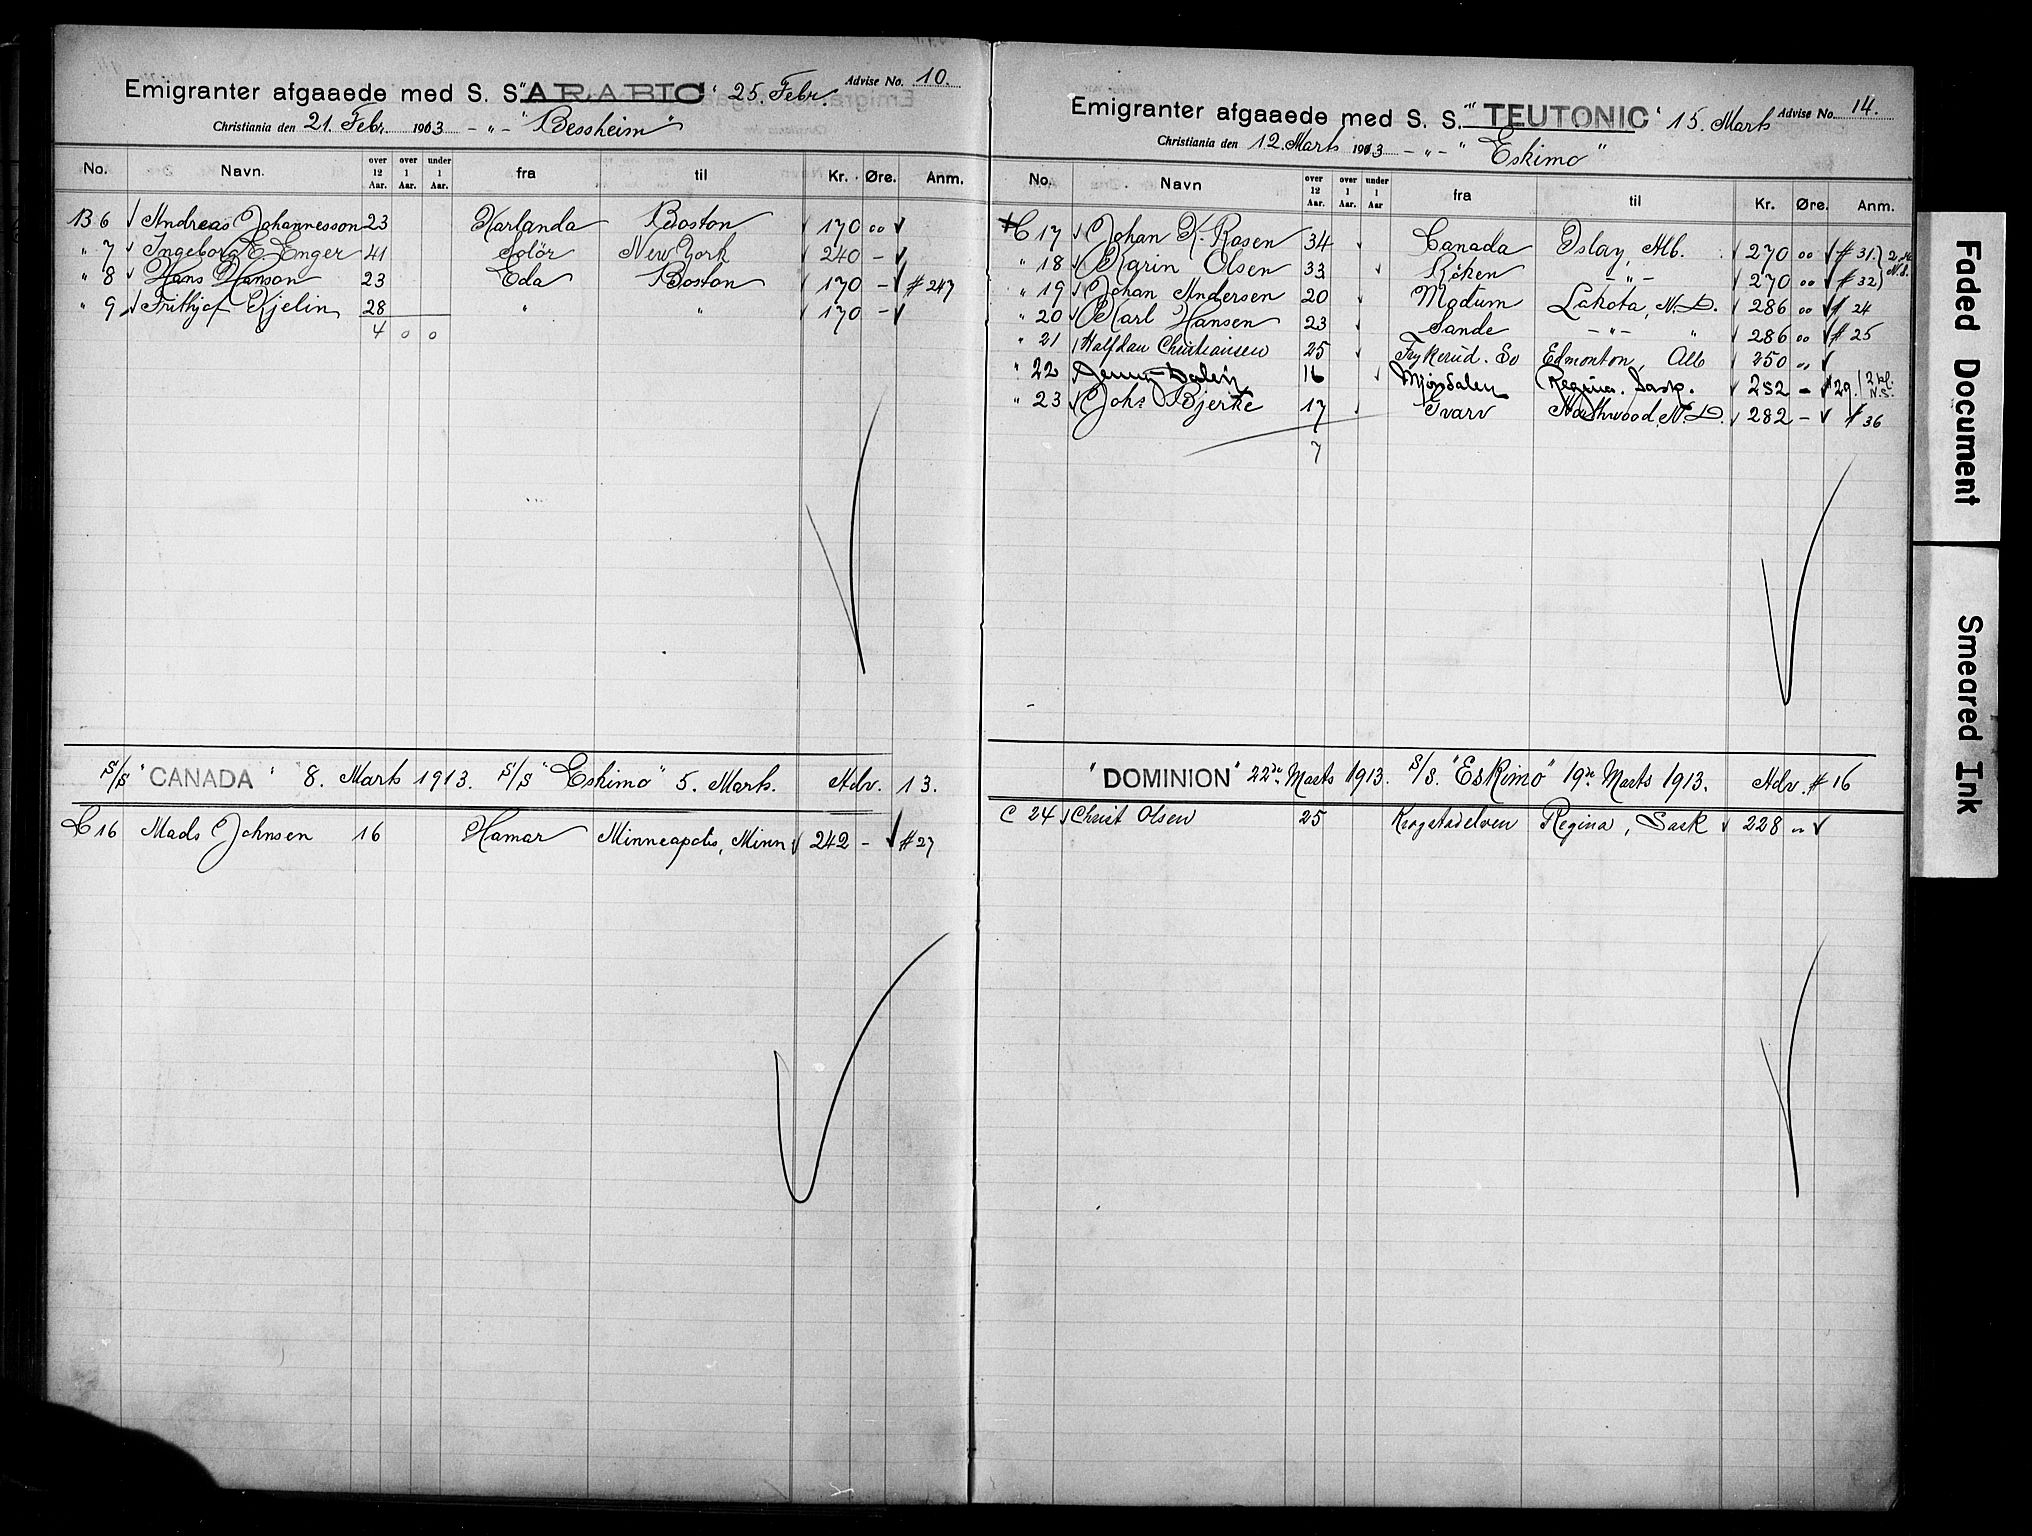 Emigranter afgaaede med S. S. "ARABIC" 25. Febr. Advise No. 10.
Christiania den 21. Febr. 1913 - " - "Bessheim"
No. Navn. over 12 Aar. over 1 Aar. under 1 Aar. fra til Kr. Øre. Anm.
B 6 Andreas Johannesson 23 Karlanda Boston 170 00
" 7 Ingeborg E. Enger 41 Solör New York 240 -
" 8 Hans Hanson 23 Eda Boston 170 - # 247
" 9 Frithjof Kjelin 28 " " 170 -
4 0 0
S/S "CANADA" 8. Marts 1913. S/S "Eskimo" 5. Marts. Adv. 13.
C 16 Mads Johnsen 16 Hamar Minneapolis, Minn 242 - # 27
Emigranter afgaaede med S. S. "TEUTONIC" 15. Marts Advise No. 14.
Christiania den 12. Marts 1913 - " - "Eskimo"
No. Navn over 12 Aar. over 1 Aar. under 1 Aar fra til Kr. Øre. Anm.
C 17 Johan K. Rosen 34 Canada Islay, Alb. 270 00 # 31
" 18 Karin Olsen 33 Röken - " - 270 00 # 32
" 19 Johan Andersen 20 Modum Lakota, N. D. 286 00 # 24
" 20 Karl Hansen 23 Sande - " - " 286 00 # 25
" 21 Halfdan Christiansen 25 Frykerud. Sv Edmonton, Alb 250 "
" 22 Jenny Dalen 16 Mjøndalen Regina. Sask. 252 - # 29. 2 kl. N.S.
" 23 Johs Bjerke 17 Tvarv Northwood, N. D. 282 - # 36
7
"DOMINION" 22de Marts 1913. S/S. "Eskimo" 19de Marts 1913. Adv. # 16
C 24 Christ Olsen 25 Krogstadelven Regina, Sask 228 "
Faded Document
Smeared Ink